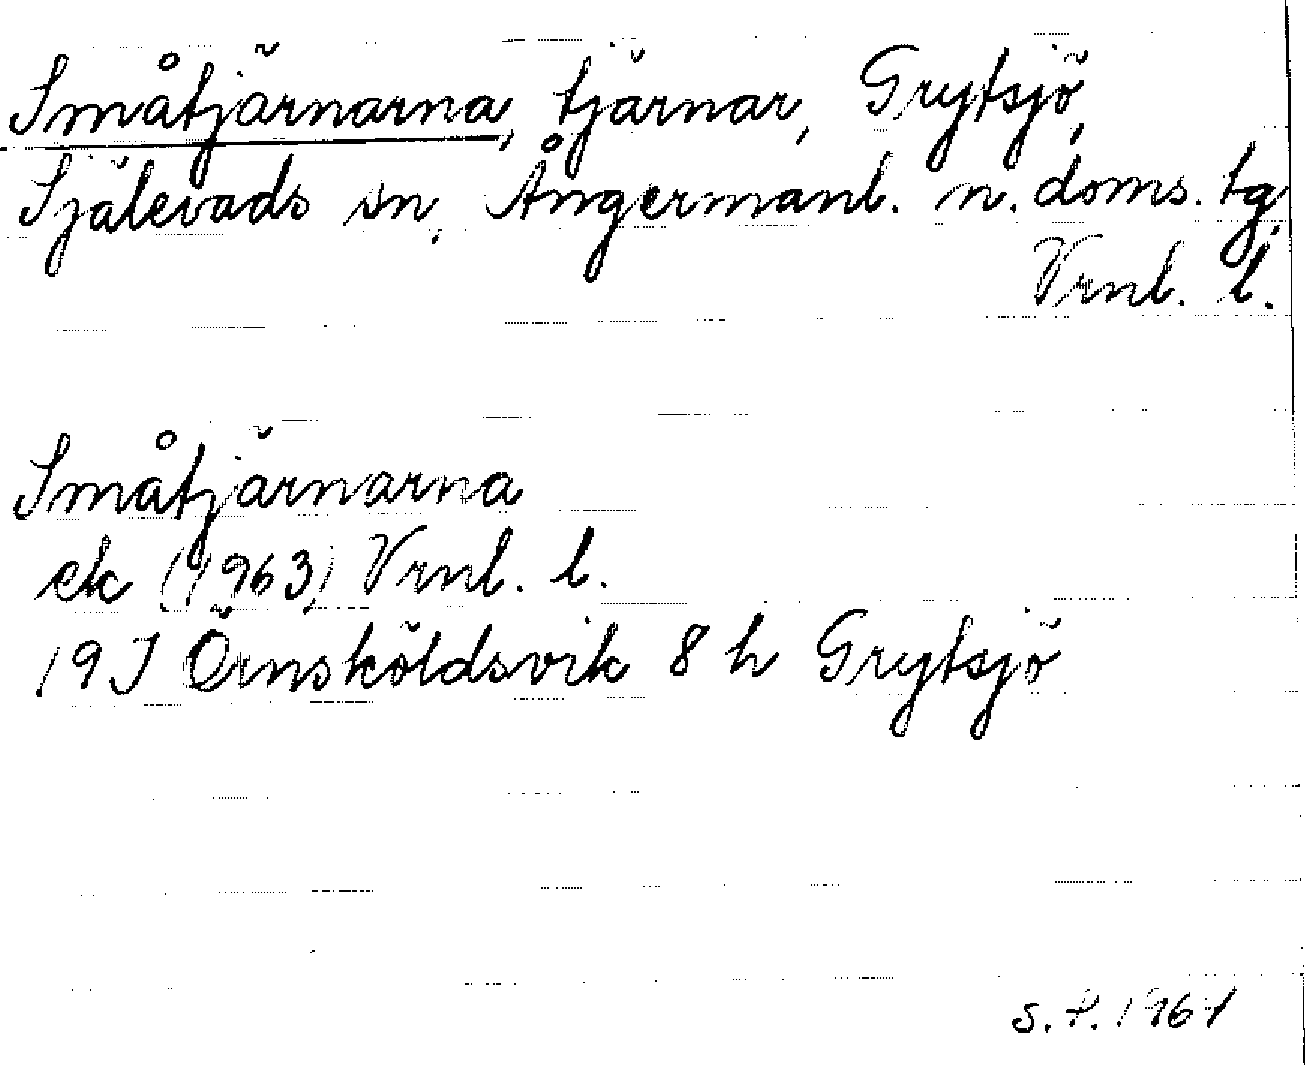 Småtjärnarna, tjärnar, Grytsjö,
Själevads sn, Ångermanl. n. doms. tg,
Vrnl. l.
Småtjärnarna
ek (1963) Vrnl. l.
19J Örnsköldsvik 8 h Grytsjö